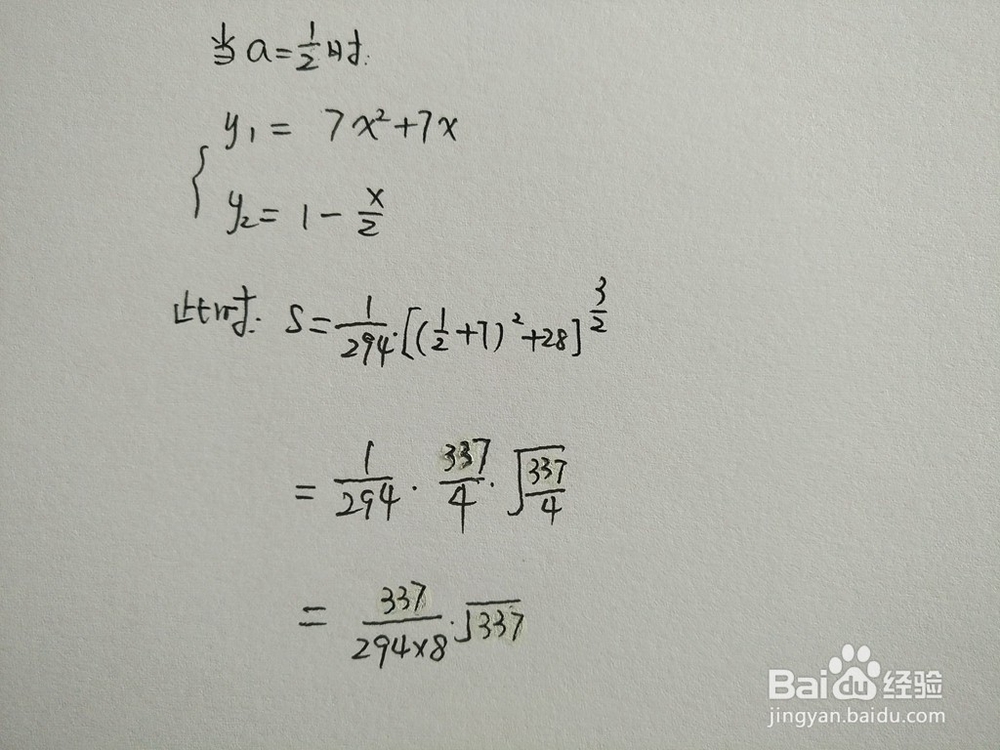 当a=1/2时.
y₁= 7x²+7x
y₂= 1-x/2
此时: S=1/294·[(1/2+7)²+28]^(3/2)
=1/294·337/4·√(337/4)
=337/(294×8)·√337
Baidu经验
jingyan.baidu.com